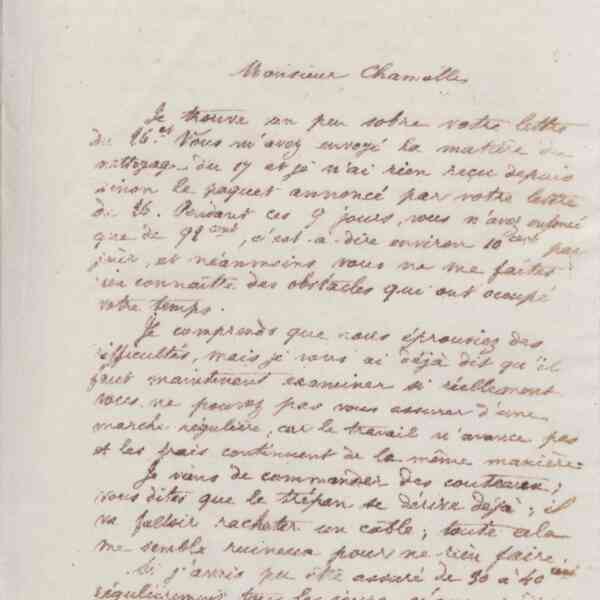 Monsieur Chamolle
Je trouve un peu sobre votre lettre
du 26 ct Vous m'avez envoyé la matière du
nettoyage du 17 et je n'ai rien reçu depuis
sinon le paquet annoncé par votre lettre
du 26. Pendant ces 9 jours, vous n'avez enfoncé
que de 92 cent, c'est-à-dire environ 10 cent par
jour, et néanmoins vous ne me faites
connaître des obstacles qui ont occupé
votre temps.
Je comprends que vous éprouviez des
difficultés, mais je vous ai déjà dit qu'il
faut maintenant examiner si réellement
vous ne pouvez pas vous assurer d'une
marche régulière, car le travail n'avance pas
et les frais continuent de la même manière.
Je viens de commander des couteaux;
vous dites que le trépan se dérive déjà; il
va falloir racheter un câble; toute cela
me semble ruineux pour ne rien faire.
Si j'avais pu être assuré de 30 à 40 cent
régulièrement tous les jours